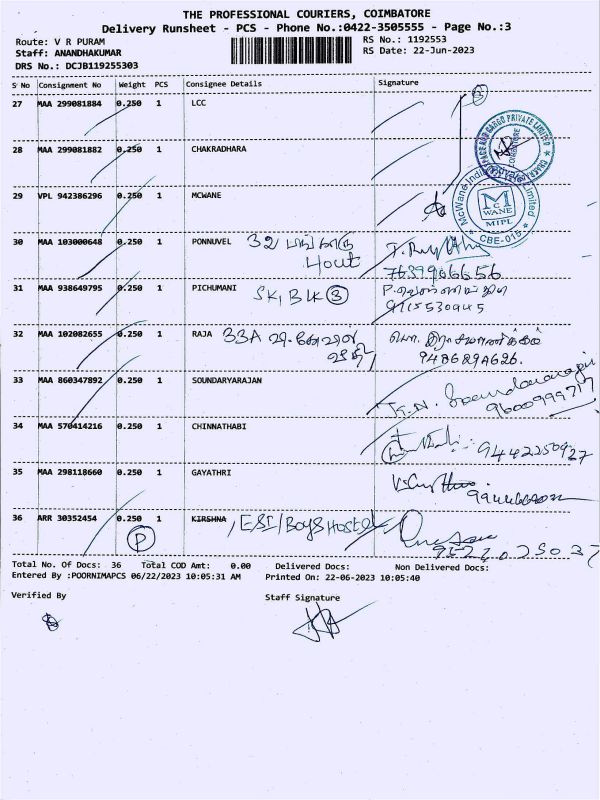 THE PROFESSIONAL COURIERS, COIMBATORE
Delivery Runsheet - PCS - Phone No.:0422-3505555 - Page No.:3
Route: V R PURAM
RS No.: 1192553
Staff: ANANDHAKUMAR
RS Date: 22-Jun-2023
DRS No.: DCJB119255303
S No Consignment No Weight PCS Consignee Details Signature
27 MAA 299081884 0.250 1 LCC
28 MAA 299081882 0.250 1 CHAKRADHARA
29 VPL 942386296 0.250 1 MCWANE
McWane India Private Limited
MC WANE
MIPL
CBE-015
30 MAA 103000648 0.250 1 PONNUVEL 32
7639906656
31 MAA 938649795 0.250 1 PICHUMANI SKI BLK 3
9715530945
32 MAA 102082655 0.250 1 RAJA 33A
33 MAA 860347892 0.250 1 SOUNDARYARAJAN
34 MAA 570414216 0.250 1 CHINNATHABI
9442250927
35 MAA 298118660 0.250 1 GAYATHRI
36 ARR 30352454 0.250 1 KIRSHNA, ESI/BOYS HOSTEL
P
Total No. Of Docs: 36 Total COD Amt: 0.00 Delivered Docs: Non Delivered Docs:
Entered By :POORNIMAPCS 06/22/2023 10:05:31 AM Printed On: 22-06-2023 10:05:40
Verified By
Staff Signature